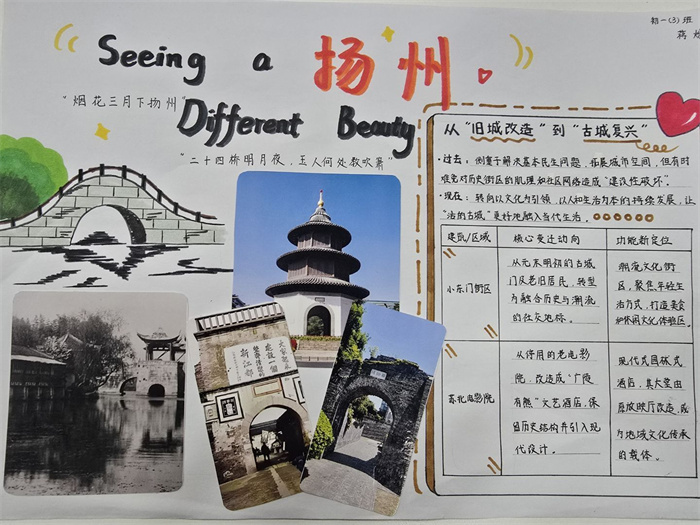 初一(3)班
蒋
Seeing a 扬州
"烟花三月下扬州"
Different Beauty
"二十四桥明月夜，玉人何处教吹箫"
从"旧城改造"到"古城复兴"
·过去：侧重于解决基本民生问题，拓展城市空间，但有时
难免对历史街区的肌理和社区网络造成"建设性破坏"。
·现在：转向以文化为引领，以人和生活为本的持续发展，让
"活的古城"更好地融入当代生活。
建筑/区域
核心变迁动向
功能新定位
小东门街区
从元末明初的古城
门及老旧居民，转型
为融合历史与潮流
的社交地标。
潮流文化街
区，聚焦年轻生
活方式，打造美食
和休闲文化体验区
苏北电影院
从停用的老电影
院，改造成"广陵
有熊"文艺酒店，保
留历史结构并引入现
代设计。
现代式园林式
酒店，其大堂由
原放映厅改造，成
为地域文化传承
的载体。